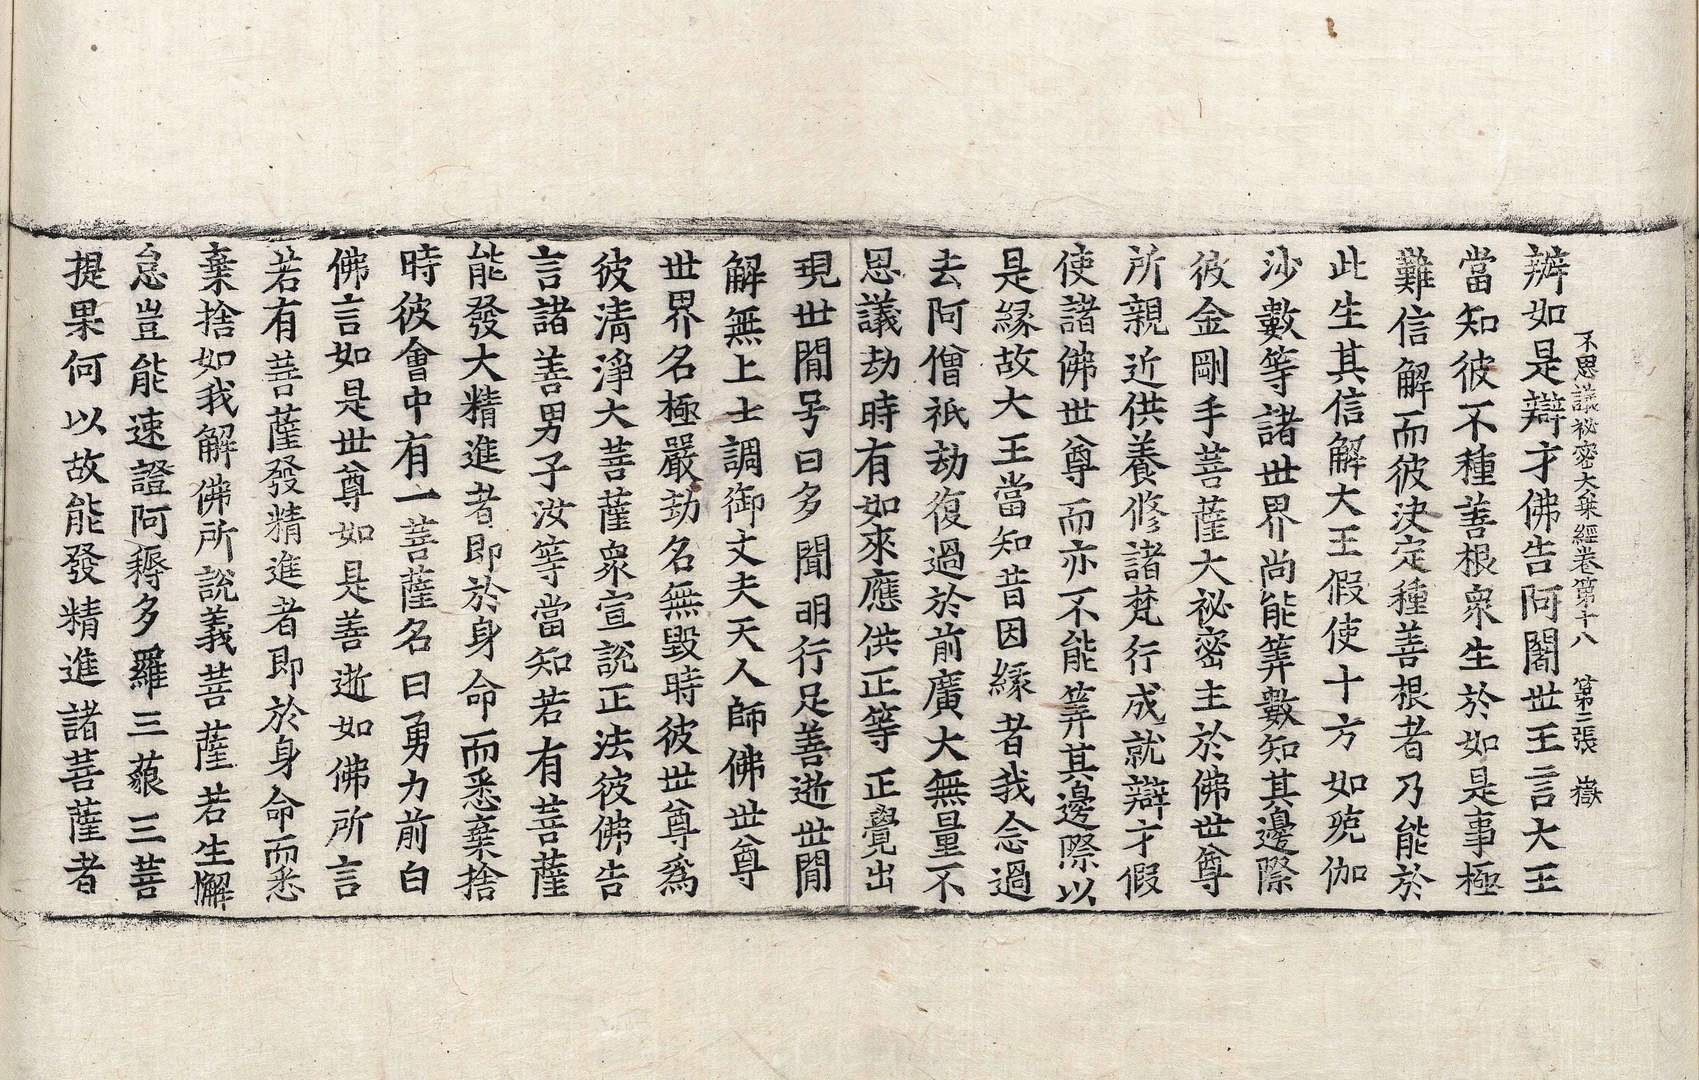 不思議祕密大乗經卷第十八　第三張　嶽
辨如是辯才佛告阿闍世王言大王
當知彼不種善根衆生於如是事極
難信解而彼決定種善根者乃能於
此生其信解大王假使十方如殑伽
沙數等諸世界尚能筭數知其邊際
彼金剛手菩薩大祕密主於佛世尊
所親近供養修諸梵行成就辯才假
使諸佛世尊而亦不能筭其邊際以
是緣故大王當知昔因緣者我念過
去阿僧祇劫復過於前廣大無量不
思議劫時有如來應供正等正覺出
現世間号曰多聞明行足善逝世間
解無上士調御丈夫天人師佛世尊
世界名極嚴劫名無毀時彼世尊爲
彼清淨大菩薩衆宣說正法彼佛告
言諸善男子汝等當知若有菩薩
能發大精進者即於身命而悉棄捨
時彼會中有一菩薩名曰勇力前白
佛言如是世尊如是善逝如佛所言
若有菩薩發精進者即於身命而悉
棄捨如我解佛所說義菩薩若生懈
怠豈能速證阿耨多羅三藐三菩
提果何以故能發精進諸菩薩者